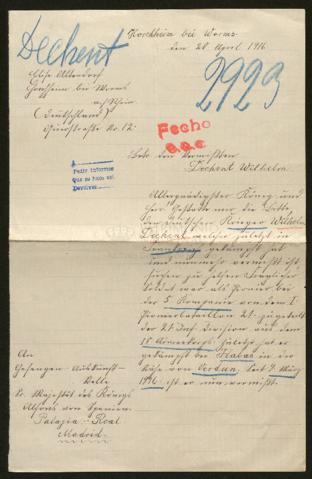 Dechent
Horchheim bei Worms
den 28. April 1916.
2923
Elise Allendorf
Horchheim bei Worms
a/Rhein
(Deutschland)
Nr. 12.
Fecho
Pedir informes
Que se hizo así
Devolver
Bitte den Vermissten
Dechent Wilhelm
Allergnädigster König und
Herr Gestatte mir die Bitte
den deutschen Krieger Wilhelm
Dechent welcher zuletzt in
gekämpft hat
und nunmehr vermisst ist
suchen zu
Soldat war als Pionier bei
der 5 Kompanie von dem I
Pionierbataillon 21. zugeteilt
der 21 Inf. Division aus dem
18 Armeekorps. Zuletzt hat er
gekämpft bei in der
Nähe von Verdun, seit 9. März
1916 ist er nun vermisst.
An
Gefangen Auskunft-
Stelle
Sr. Majestät des Königs
Alfons von Spanien.
Palazia - Real
Madrid.